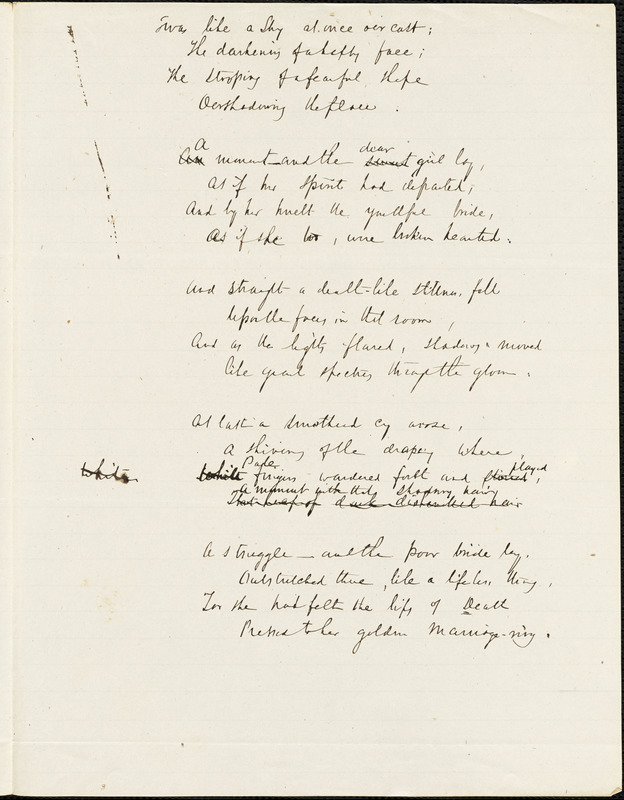 'Twas like a sky at once overcast;
The darkening of a lofty face;
The stooping of a fearful shape
Overshadowing the place.
A
An moment and the dear sweet girl lay,
As if her spirit had departed;
And by her knelt the youthful bride,
As if she too, were broken hearted.
And straight a death-like stillness fell
Upon the faces in that room,
And as the lights flared, shadows moved
Like great spectres through the gloom.
At last a smothered cry arose,
A shivering of the drapery where,
White
White Paler fingers wandered forth and played,
A moment with the shadowy hair
That heap of dark dishevelled hair
A struggle — and the poor bride lay.
Outstretched there, like a lifeless thing,
For she had felt the lips of Death
Pressed to her golden marriage-ring.